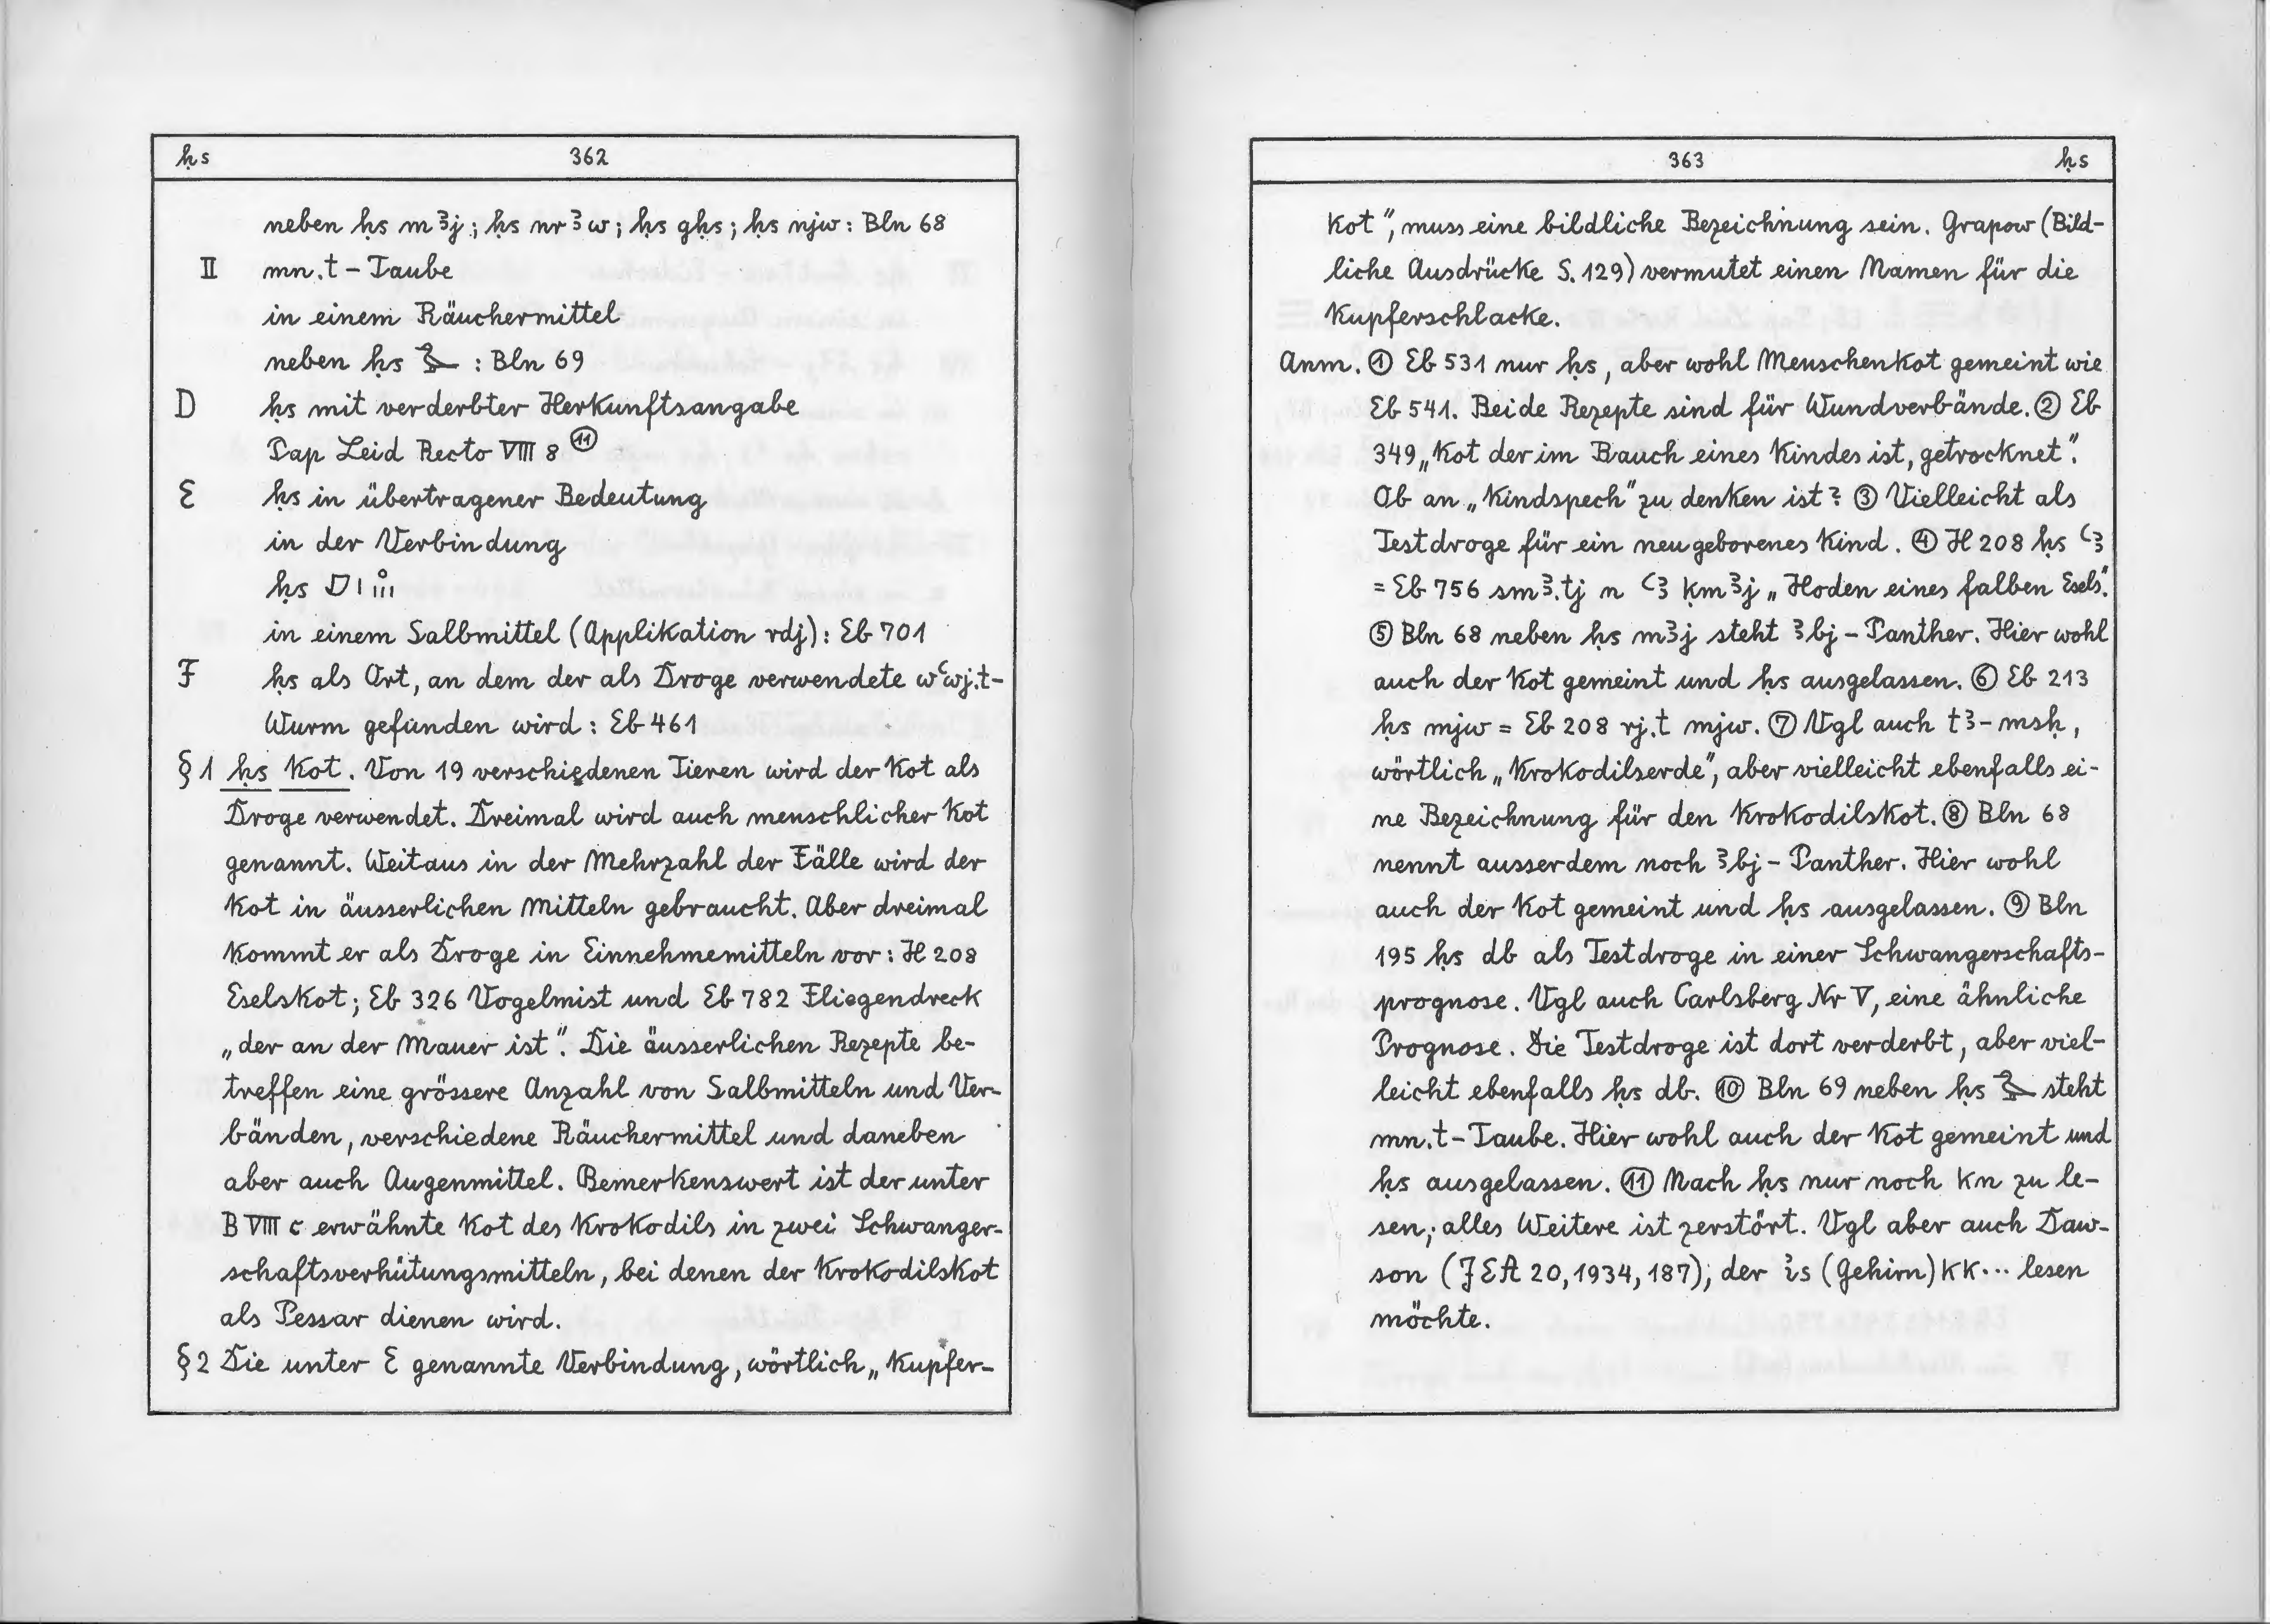 ḥs 362
neben ḥs mꜣj; ḥs nrꜣw; ḥs gḥs; ḥs njw: Bln 68
II mn.t – Taube
in einem Räuchermittel
neben ḥs : Bln 69
D ḥs mit verderbter Herkunftsangabe
Pap Leid Recto VIII 8 ⑪
E ḥs in übertragener Bedeutung
in der Verbindung
ḥs
in einem Salbmittel (Applikation rdj): Eb 701
F ḥs als Ort, an dem der als Droge verwendete wꜥwj.t-
Wurm gefunden wird: Eb 461
§ 1 ḥs Kot. Von 19 verschiedenen Tieren wird der Kot als
Droge verwendet. Dreimal wird auch menschlicher Kot
genannt. Weitaus in der Mehrzahl der Fälle wird der
Kot in äusserlichen Mitteln gebraucht. Aber dreimal
kommt er als Droge in Einnehmemitteln vor: H 208
Eselskot; Eb 326 Vogelmist und Eb 782 Fliegendreck
„der an der Mauer ist“. Die äusserlichen Rezepte be-
treffen eine grössere Anzahl von Salbmitteln und Ver-
bänden, verschiedene Räuchermittel und daneben
aber auch Augenmittel. Bemerkenswert ist der unter
B VIII c erwähnte Kot des Krokodils in zwei Schwanger-
schaftsverhütungsmitteln, bei denen der Krokodilskot
als Pessar dienen wird.
§ 2 Die unter E genannte Verbindung, wörtlich „Kupfer-
363 ḥs
kot“, muss eine bildliche Bezeichnung sein. Grapow (Bild-
liche Ausdrücke S. 129) vermutet einen Namen für die
Kupferschlacke.
Anm. ① Eb 531 nur ḥs, aber wohl Menschenkot gemeint wie
Eb 541. Beide Rezepte sind für Wundverbände. ② Eb
349 „Kot der im Bauch eines Kindes ist, getrocknet“.
Ob an „Kindspech“ zu denken ist? ③ Vielleicht als
Testdroge für ein neugeborenes Kind. ④ H 208 ḥs ꜥꜣ
= Eb 756 smꜣ.tj n ꜥꜣ ḳmꜣj „Hoden eines falben Esels“.
⑤ Bln 68 neben ḥs mꜣj steht ꜣbj – Panther. Hier wohl
auch der Kot gemeint und ḥs ausgelassen. ⑥ Eb 213
ḥs mjw = Eb 208 rj.t mjw. ⑦ Vgl auch tꜣ-msḥ,
wörtlich „Krokodilserde“, aber vielleicht ebenfalls ei-
ne Bezeichnung für den Krokodilskot. ⑧ Bln 68
nennt ausserdem noch ꜣbj – Panther. Hier wohl
auch der Kot gemeint und ḥs ausgelassen. ⑨ Bln
195 ḥs db als Testdroge in einer Schwangerschafts-
prognose. Vgl auch Carlsberg Nr V, eine ähnliche
Prognose. Die Testdroge ist dort verderbt, aber viel-
leicht ebenfalls ḥs db. ⑩ Bln 69 neben ḥs steht
mn.t – Taube. Hier wohl auch der Kot gemeint und
ḥs ausgelassen. ⑪ Nach ḥs nur noch kn zu le-
sen; alles Weitere ist zerstört. Vgl aber auch Daw-
son (JEA 20, 1934, 187), der ꜣis (Gehirn) kk... lesen
möchte.